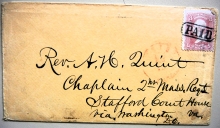 PAID
Rev. A. H. Quint
Chaplain 2nd Mass. Regt
Stafford Court House
via Washington Va.
D.C.